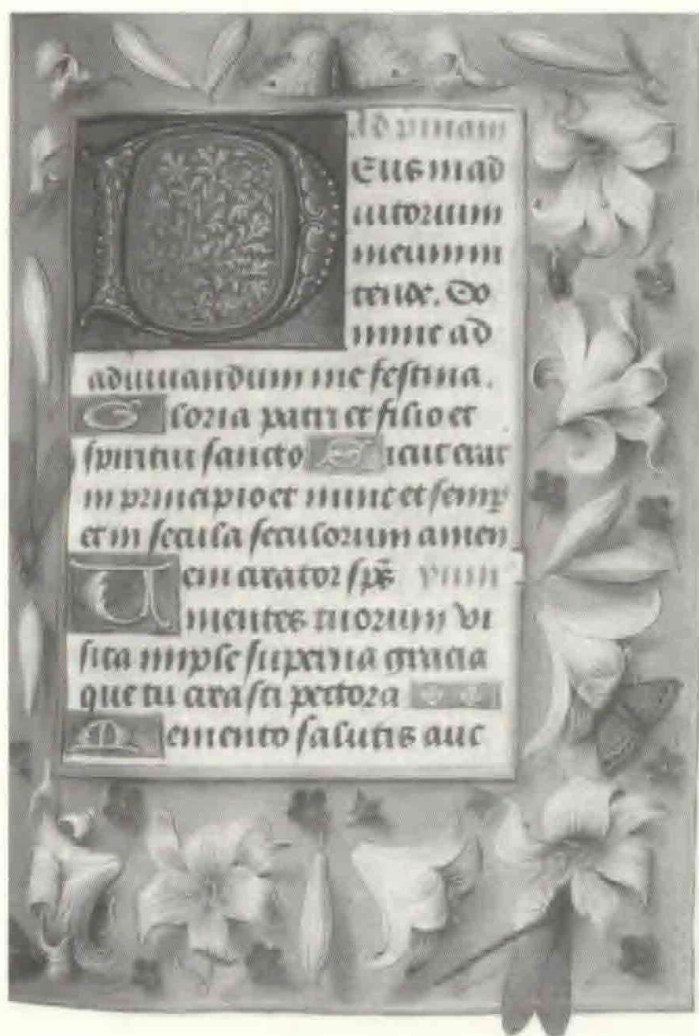 Ad primam
Deus in ad
iutorium
meum in
tende. Do
mine ad
adiuuandum me festina.
Gloria patri et filio et
spiritui sancto Sicut erat
in principio et nunc et semp̄
et in secula seculorum amen
Veni creator sp̄s ymn
mentes tuorum vi
sita imple superna gracia
que tu creasti pectora
Memento salutis auc